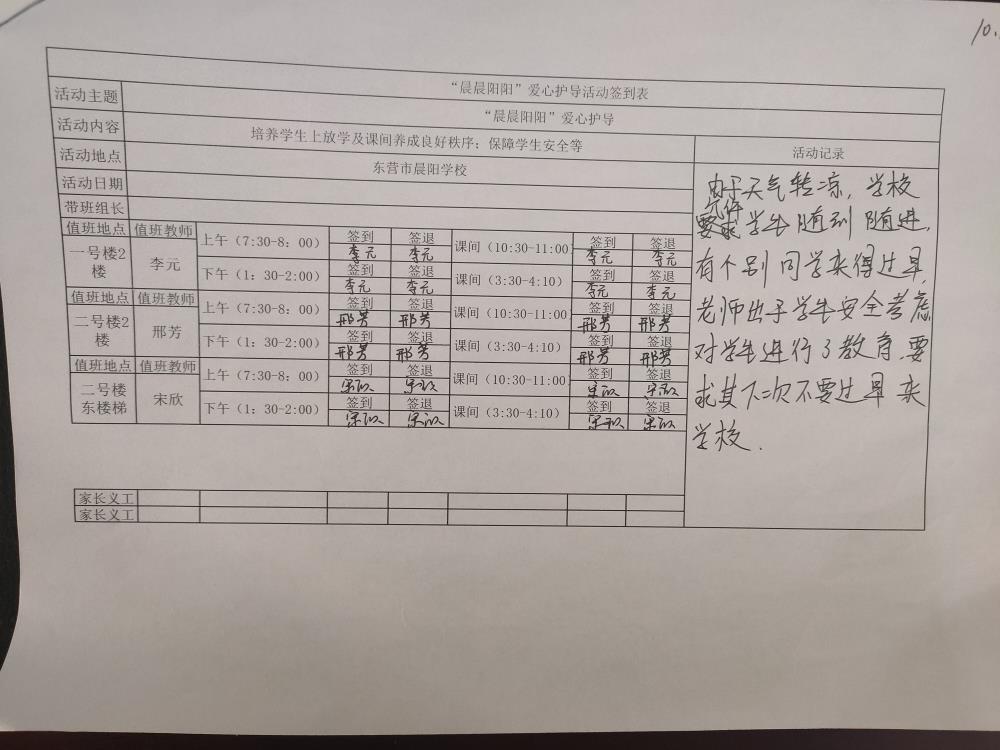 10.
“晨晨阳阳”爱心护导活动签到表
活动主题 “晨晨阳阳”爱心护导
活动内容 培养学生上放学及课间养成良好秩序；保障学生安全等 活动记录
活动地点 东营市晨阳学校
活动日期
带班组长
值班地点 值班教师 上午（7:30-8：00） 签到 签退 课间（10:30-11:00 签到 签退
一号楼2楼 李元 李元 李元 李元 李元
下午（1：30-2:00） 签到 签退 课间（3:30-4:10） 签到 签退
李元 李元 李元 李元
值班地点 值班教师 上午（7:30-8：00） 签到 签退 课间（10:30-11:00 签到 签退
二号楼2楼 邢芳 邢芳 邢芳 邢芳 邢芳
下午（1：30-2:00） 签到 签退 课间（3:30-4:10） 签到 签退
邢芳 邢芳 邢芳 邢芳
值班地点 值班教师 上午（7:30-8：00） 签到 签退 课间（10:30-11:00 签到 签退
二号楼东楼梯 宋欣 宋欣 宋欣 宋欣 宋欣
下午（1：30-2:00） 签到 签退 课间（3:30-4:10） 签到 签退
宋欣 宋欣 宋欣 宋欣
家长义工
家长义工
由于天气转凉，学校
允许学生随到随进，
有个别同学来得过早
老师出于学生安全考虑
对学生进行了教育，要
求其下次不要过早来
学校．